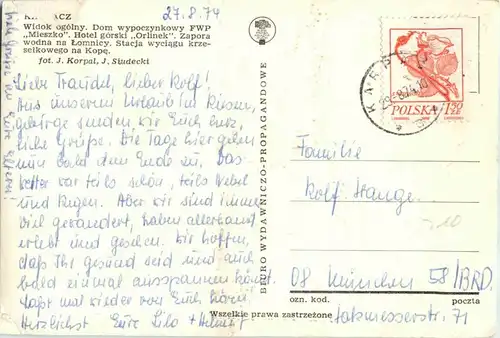 27.8.74
KARPACZ
Widok ogólny. Dom wypoczynkowy FWP
„Mieszko". Hotel górski „Orlinek". Zapora
wodna na Łomnicy. Stacja wyciągu krze-
sełkowego na Kopę.
fot. J. Korpal, J. Siudecki
Liebe Traudel, lieber Rolf!
Aus unserem Urlaub im Riesen-
gebirge senden wir Euch herz-
liche Grüße. Die Tage hier gehen
nun bald dem Ende zu. Das
Wetter war teils schön, teils Nebel
und Regen. Aber wir sind immer
viel gewandert, haben allerhand
erlebt und gesehen. Wir hoffen,
daß Ihr gesund seid und auch
bald einmal ausspannen könnt.
Laßt mal wieder von Euch hören.
Herzlichst Eure Lilo + Helmut
Grüße an Eure Eltern!
BIURO WYDAWNICZO-PROPAGANDOWE
KARPACZ
29.8.74
POLSKA 1,50 ZŁ
Familie
Rolf Hange
08 München 58/BRD
ozn. kod. poczta
71
Wszelkie prawa zastrzeżone